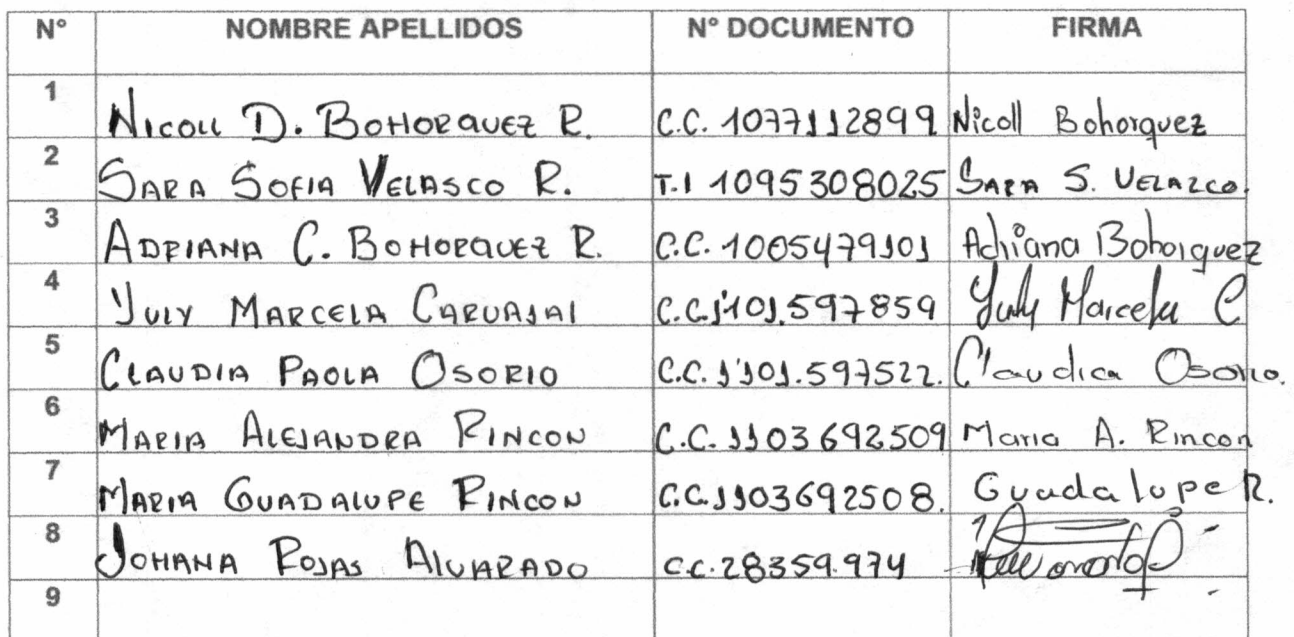 N° NOMBRE APELLIDOS N° DOCUMENTO FIRMA
1 Nicoll D. BOHORQUEZ R. C.C. 1077112899 Nicoll Bohorquez
2 SARA SOFIA VELASCO R. T.I 1095308025 SARA S. VELAZCO.
3 ADRIANA C. BOHORQUEZ R. C.C. 1005479101 Adriana Bohorquez
4 YULY MARCELA CARVAJAL C.C.1'101.597859 Yuly Marcela C
5 CLAUDIA PAOLA OSORIO C.C. 1'101.597522. Claudia Osorio.
6 MARIA ALEJANDRA RINCON C.C. 1103692509 Maria A. Rincon
7 MARIA GUADALUPE RINCON C.C.1103692508. Guadalupe R.
8 JOHANA ROJAS ALVARADO C.C.28359.974
9